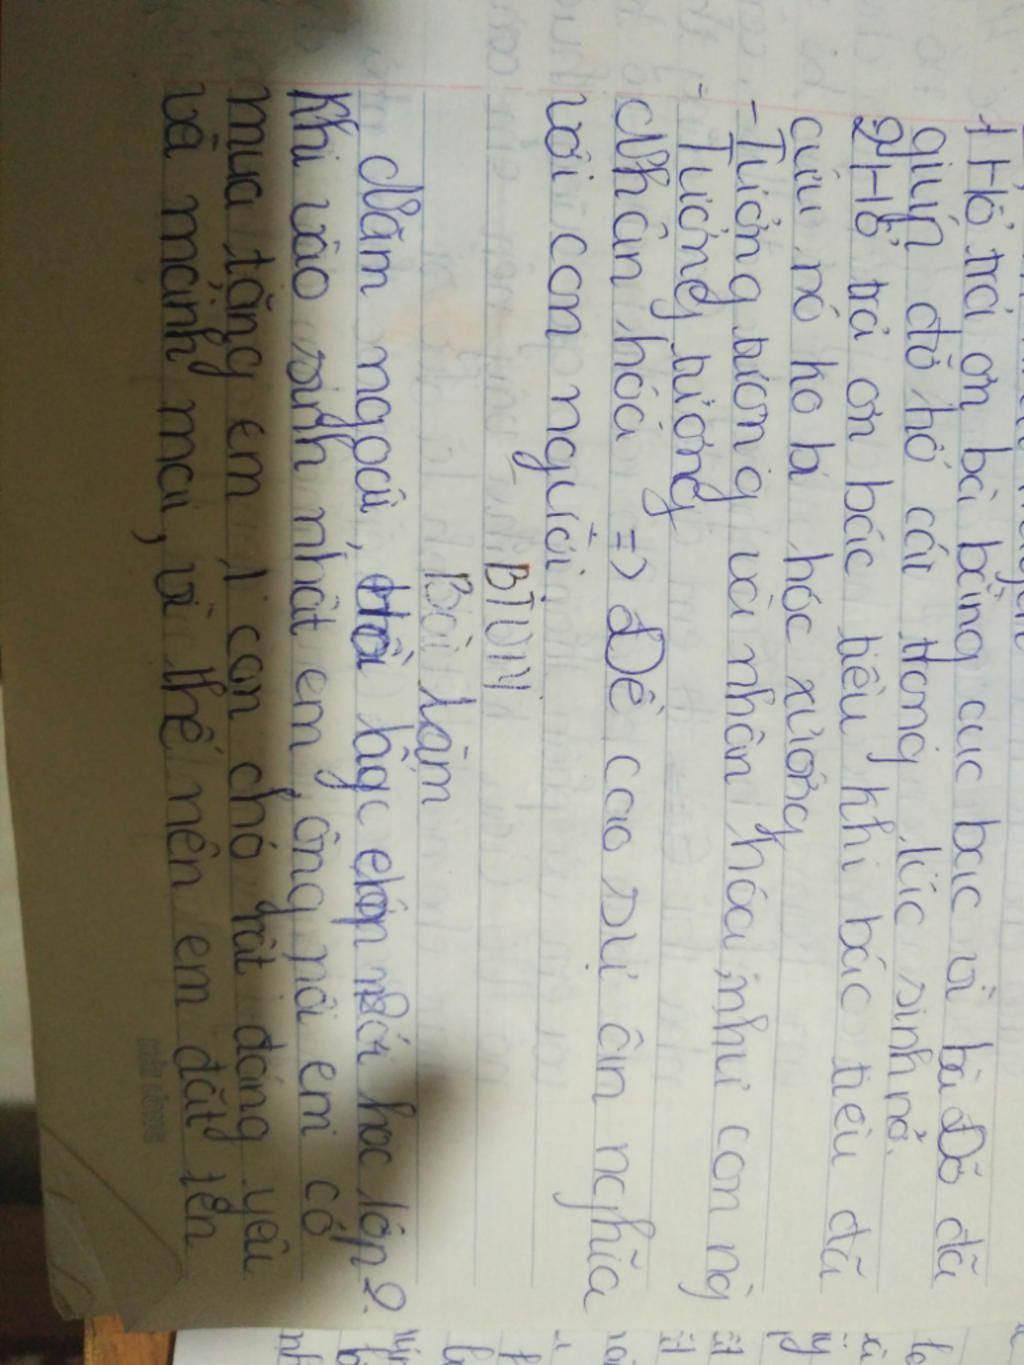 1 Hổ trả ơn bà bằng cục bạc vì bà Đỡ đã
giúp đỡ hổ cái trong lúc sinh nở.
2 Hổ trả ơn bác tiều khi bác tiều đã
cứu nó ko bị hóc xương
- Tưởng tượng và nhân hóa như con ng
- Tưởng tượng
Nhân hóa => Đề cao sự ân nghĩa
với con người
BTVN
Bài làm
Năm ngoái, hồi học lớp mới học lớp 2.
Khi vào sinh nhật em, ông nội em có
mua tặng em 1 con chó rất đáng yêu
và mạnh mai, vì thế nên em đặt tên